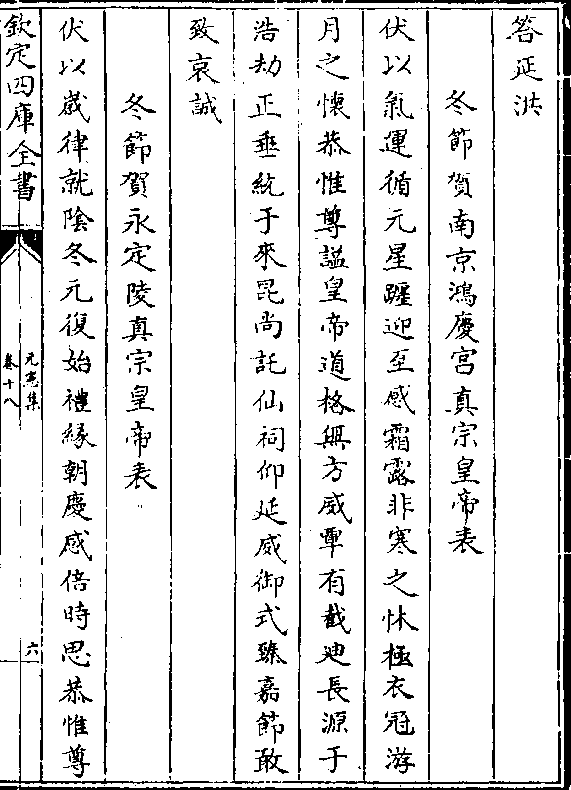 答延洪
冬節賀南京鴻慶宮真宗皇帝表
伏以氣運循元星躔迎至感霜露非寒之怵極衣冠游
月之懷恭惟尊謚皇帝道格無方威覃有截廸長源于
浩劫正垂統于來昆尚託仙祠仰延威御式臻嘉節敢
致哀誠
冬節賀永定陵真宗皇帝表
伏以嵗律就陰冬元復始禮緣朝慶感倍時思恭惟尊
欽定四庫全書
元憲集
卷十八
六